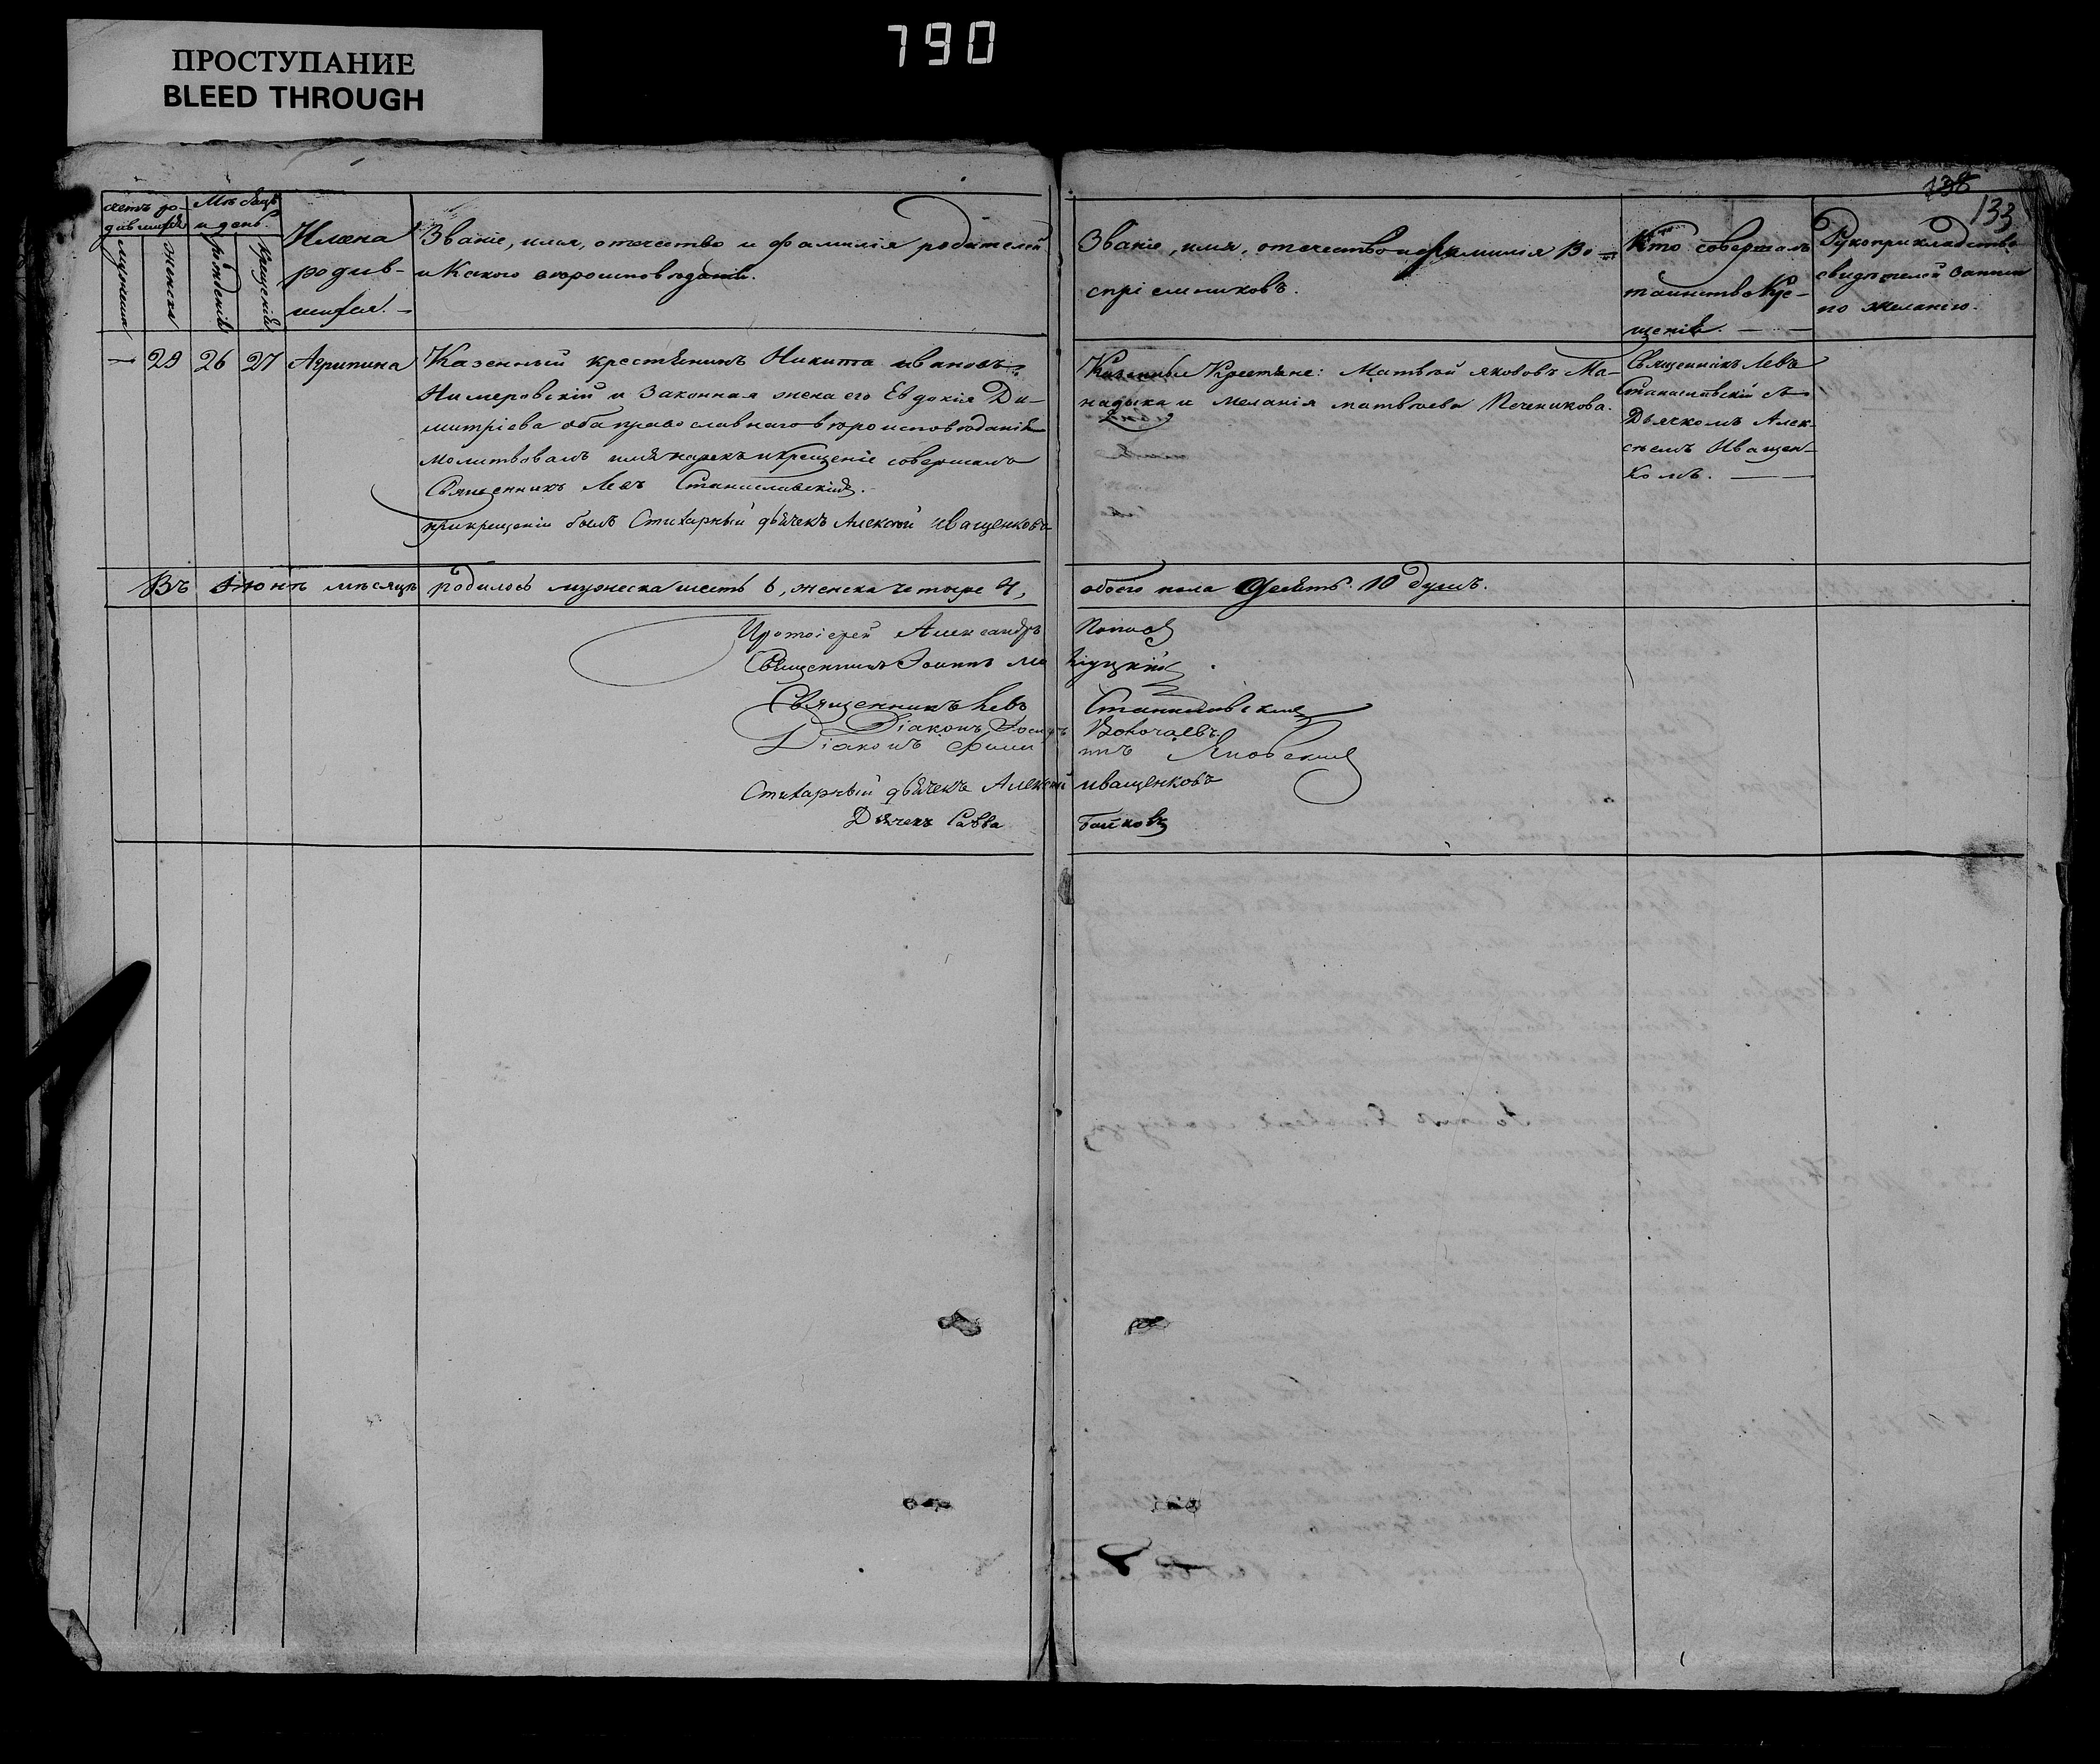 790
ПРОСТУПАНИЕ
BLEED THROUGH
138
133
Счетъ ро-
дившихся
Мѣсяцъ
и день.
мужеска
женска
рожденія
крещенія
Имена
родив-
шихся.
Званіе, имя, отечество и фамилія родителей
и Какого вѣроисповѣданія.
Званіе, имя, отечество и фамилія Во-
спріемниковъ.
Кто совершалъ
таинство Кре-
щенія.
Рукоприкладство
свидѣтелей записи
по желанію.
— 29 26 27 Агрипина
Казенный крестьянинъ Никита ивановъ
Нимеровскій и Законная жена его Евдокія Ди-
митріева оба православнаго вѣроисповѣданія
Молитвовалъ имя нарекъ и крещеніе совершалъ
Священникъ Левъ Станиславскій.
при крещеніи былъ Стихарный дьячекъ Алексѣй иващенковъ
Казенные Крестьяне: Матвѣй якововъ Ма-
надыка и меланія матвѣева Печеникова.
Священникъ Левъ
Станиславскій съ
Дьячкомъ Алек-
сѣемъ Иващен-
комъ.
Въ іюнѣ мѣсяцѣ родилось мужеска шесть 6, женска четыре 4, обоего пола Десять 10 душъ.
Протоіерей Александръ Поповъ
Священникъ Іоаннъ
Священникъ Левъ Станиславскій
Діаконъ Іосифъ
Діаконъ Филиппъ Яновскій
Стихарный дьячекъ Алексѣй иващенковъ
Дьячекъ Савва Байковъ